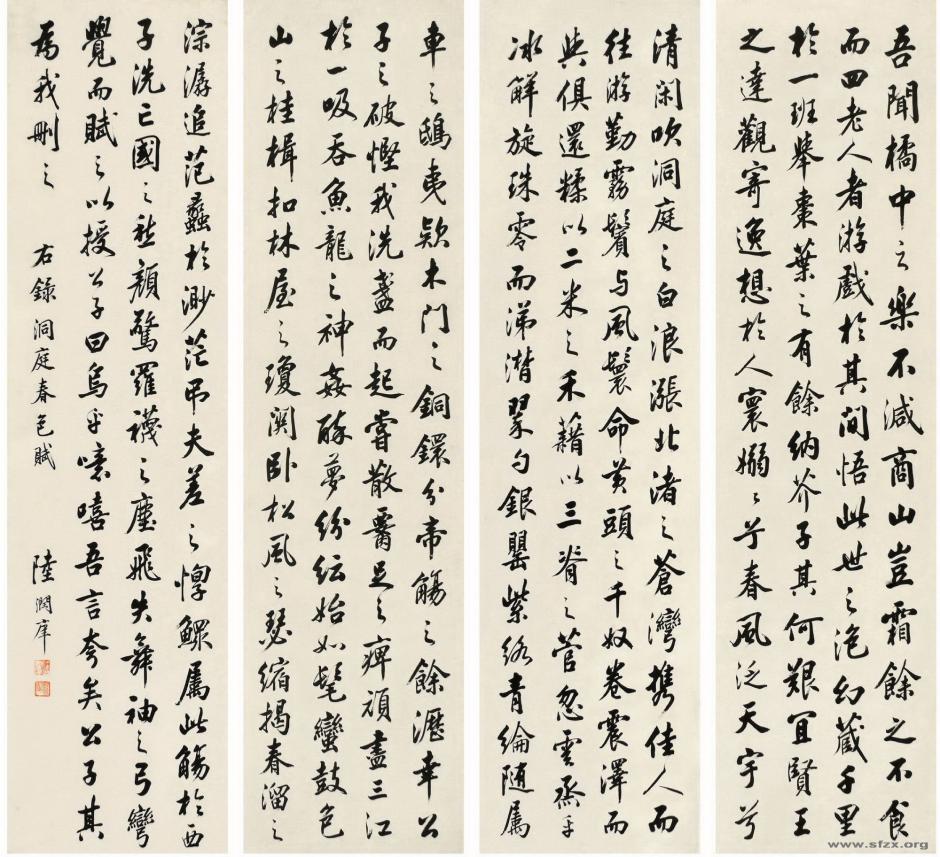 吾聞橘中之樂不減商山豈霜餘之不食
而四老人者游戲於其間悟此世之泡幻藏千里
於一班舉棗葉之有餘納芥子其何艱宜賢王
之達觀寄逸想於人寰嫋々兮春風泛天宇兮
清閑吹洞庭之白浪漲北渚之蒼灣攜佳人而
往游勤霧鬢与風鬟命黃頭之千奴卷震澤而
與俱還糅以二米之禾藉以三脊之菅忽雲烝乎
冰解旋珠零而涕潸翠勺銀罌紫絡青綸隨屬
車之鴟夷款木門之銅鐶分帝觴之餘瀝幸公
子之破慳我洗盞而起嘗散腰足之痺頑盡三江
於一吸吞魚龍之神姦醉夢紛紜始如髦蠻鼓包
山之桂楫扣林屋之瓊關卧松風之瑟縮揭春溜之
淙潺追范蠡於渺茫弔夫差之惸鰥屬此觴於西
子洗亡國之愁顏驚羅襪之塵飛失舞袖之弓彎
覺而賦之以授公子曰烏乎噫嘻吾言夸矣公子其
為我刪之 右錄洞庭春色賦 陸潤庠
www.sfzx.org